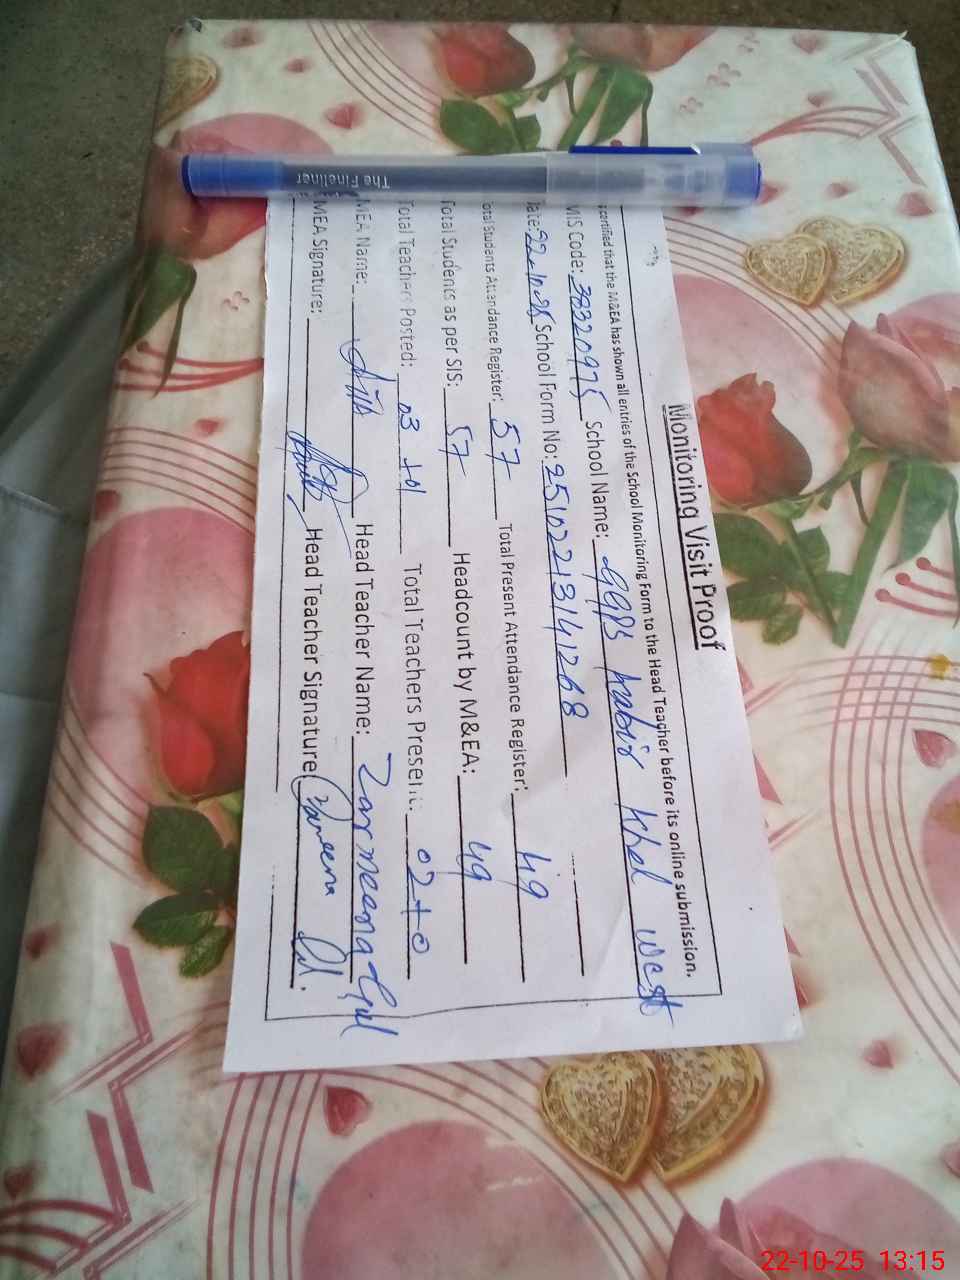 Monitoring Visit Proof
certified that the M&EA has shown all entries of the School Monitoring Form to the Head Teacher before its online submission.
MIS Code: 38320975 School Name: GGPS Kabir Khel West
Date: 22-10-25 School Form No: 25102213141268
Total Students Attandance Register: 57 Total Present Attendance Register: 49
Total Students as per SIS: 57 Headcount by M&EA: 49
Total Teachers Posted: 03+01 Total Teachers Present: 02+0
MEA Name: Head Teacher Name: Zarmeena Gul
MEA Signature: Head Teacher Signature
The Fineliner
22-10-25 13:15